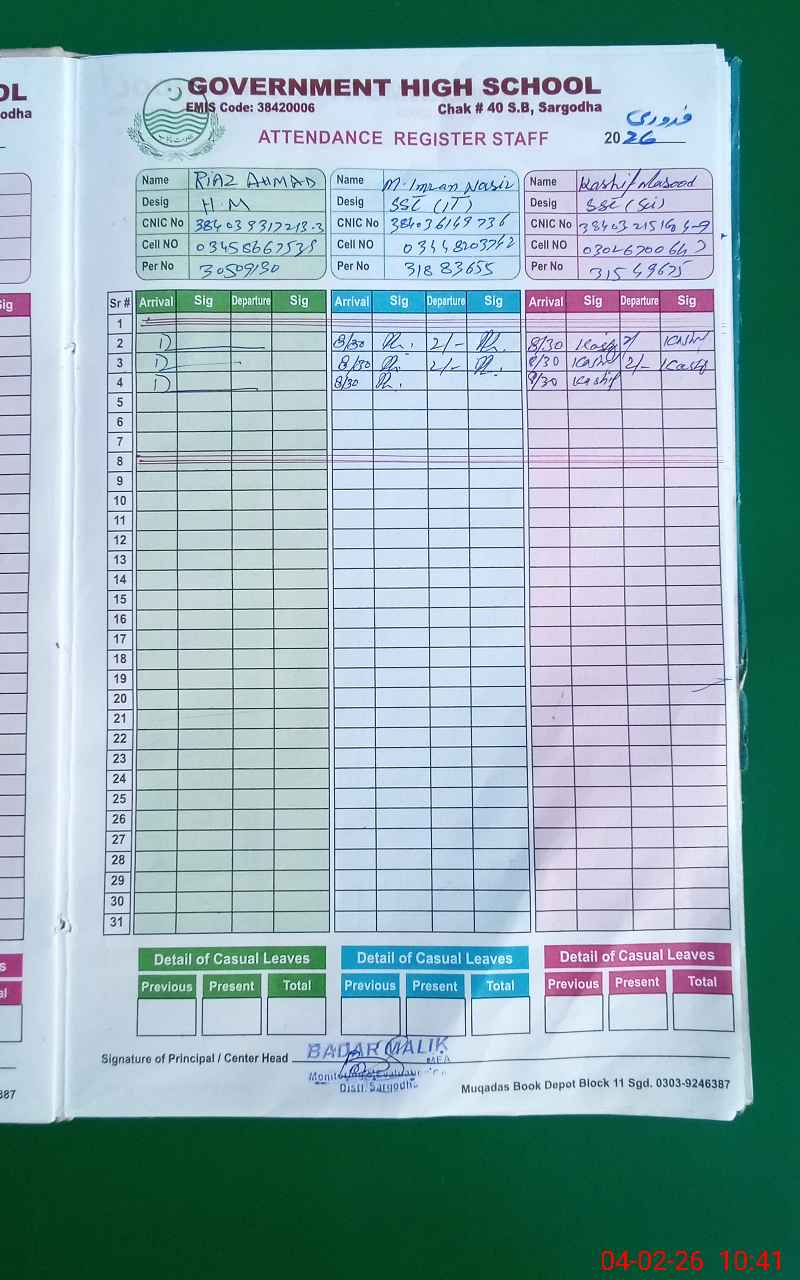 OL
GOVERNMENT HIGH SCHOOL
odha
EMIS Code: 38420006 Chak # 40 S.B, Sargodha
ATTENDANCE REGISTER STAFF 2026 فروری
Name RIAZ AHMAD Name M. Imran Nasir Name Kashif Masood
Desig H.M Desig SST (IT) Desig SST (Sci)
CNIC No CNIC No CNIC No
Cell NO Cell NO Cell NO
Per No 30509130 Per No 31883655 Per No 31549675
Sig Sr # Arrival Sig Departure Sig Arrival Sig Departure Sig Arrival Sig Departure Sig
1
2 D 8/30 2/- 8/30 Kashif 2/ Kashif
3 D 8/30 2/- 8/30 Kashif 2/- Kashif
4 D 8/30 8/30 Kashif
5
6
7
8
9
10
11
12
13
14
15
16
17
18
19
20
21
22
23
24
25
26
27
28
29
30
31
s Detail of Casual Leaves Detail of Casual Leaves Detail of Casual Leaves
al Previous Present Total Previous Present Total Previous Present Total
Signature of Principal / Center Head BADAR MALIK
MEA
Distt. Sargodha
387 Muqadas Book Depot Block 11 Sgd. 0303-9246387
04-02-26 10:41